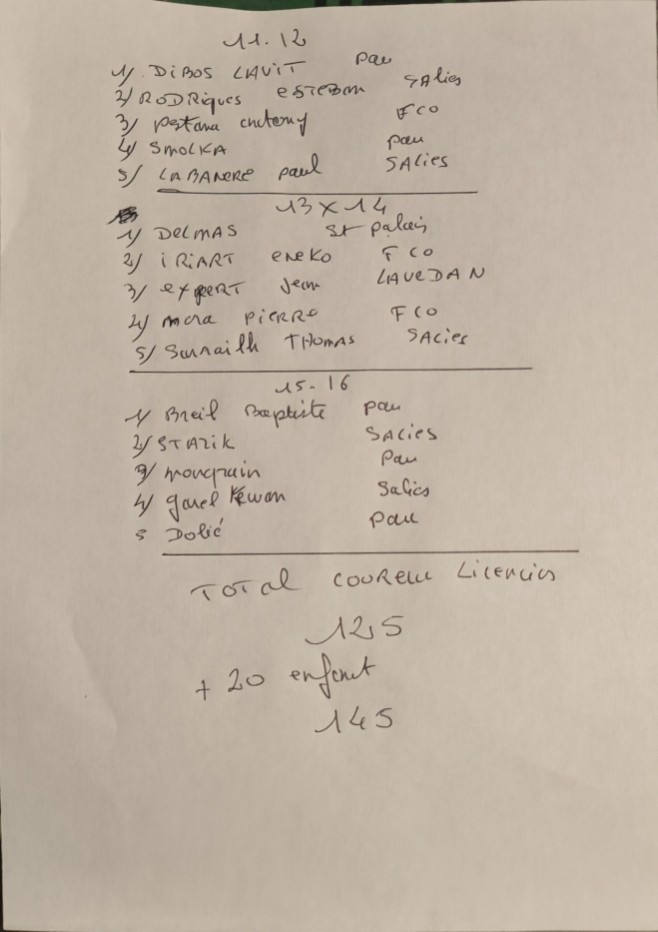 11.12
1/ DiBOS LAVIT Pau
2/ RODRiques ESTEBAN SAlies
3/ Pestana Antony FCO
4/ SMOLKA Pau
5/ LABANERE Paul SALies
13 x 14
1/ DELMAS St Palais
2/ iRiART ENEKO FCO
3/ EXPERT Jean LAVEDAN
4/ Mora PiERRE FCO
5/ Sarrailh THOMAS SALies
15-16
1/ Breil Baptiste Pau
2/ STAZiK SALies
3/ Pau
4/ garel Kewan Salies
5 Dolié Pau
TOTAl COUREU Licencies
125
+ 20 enfant
145